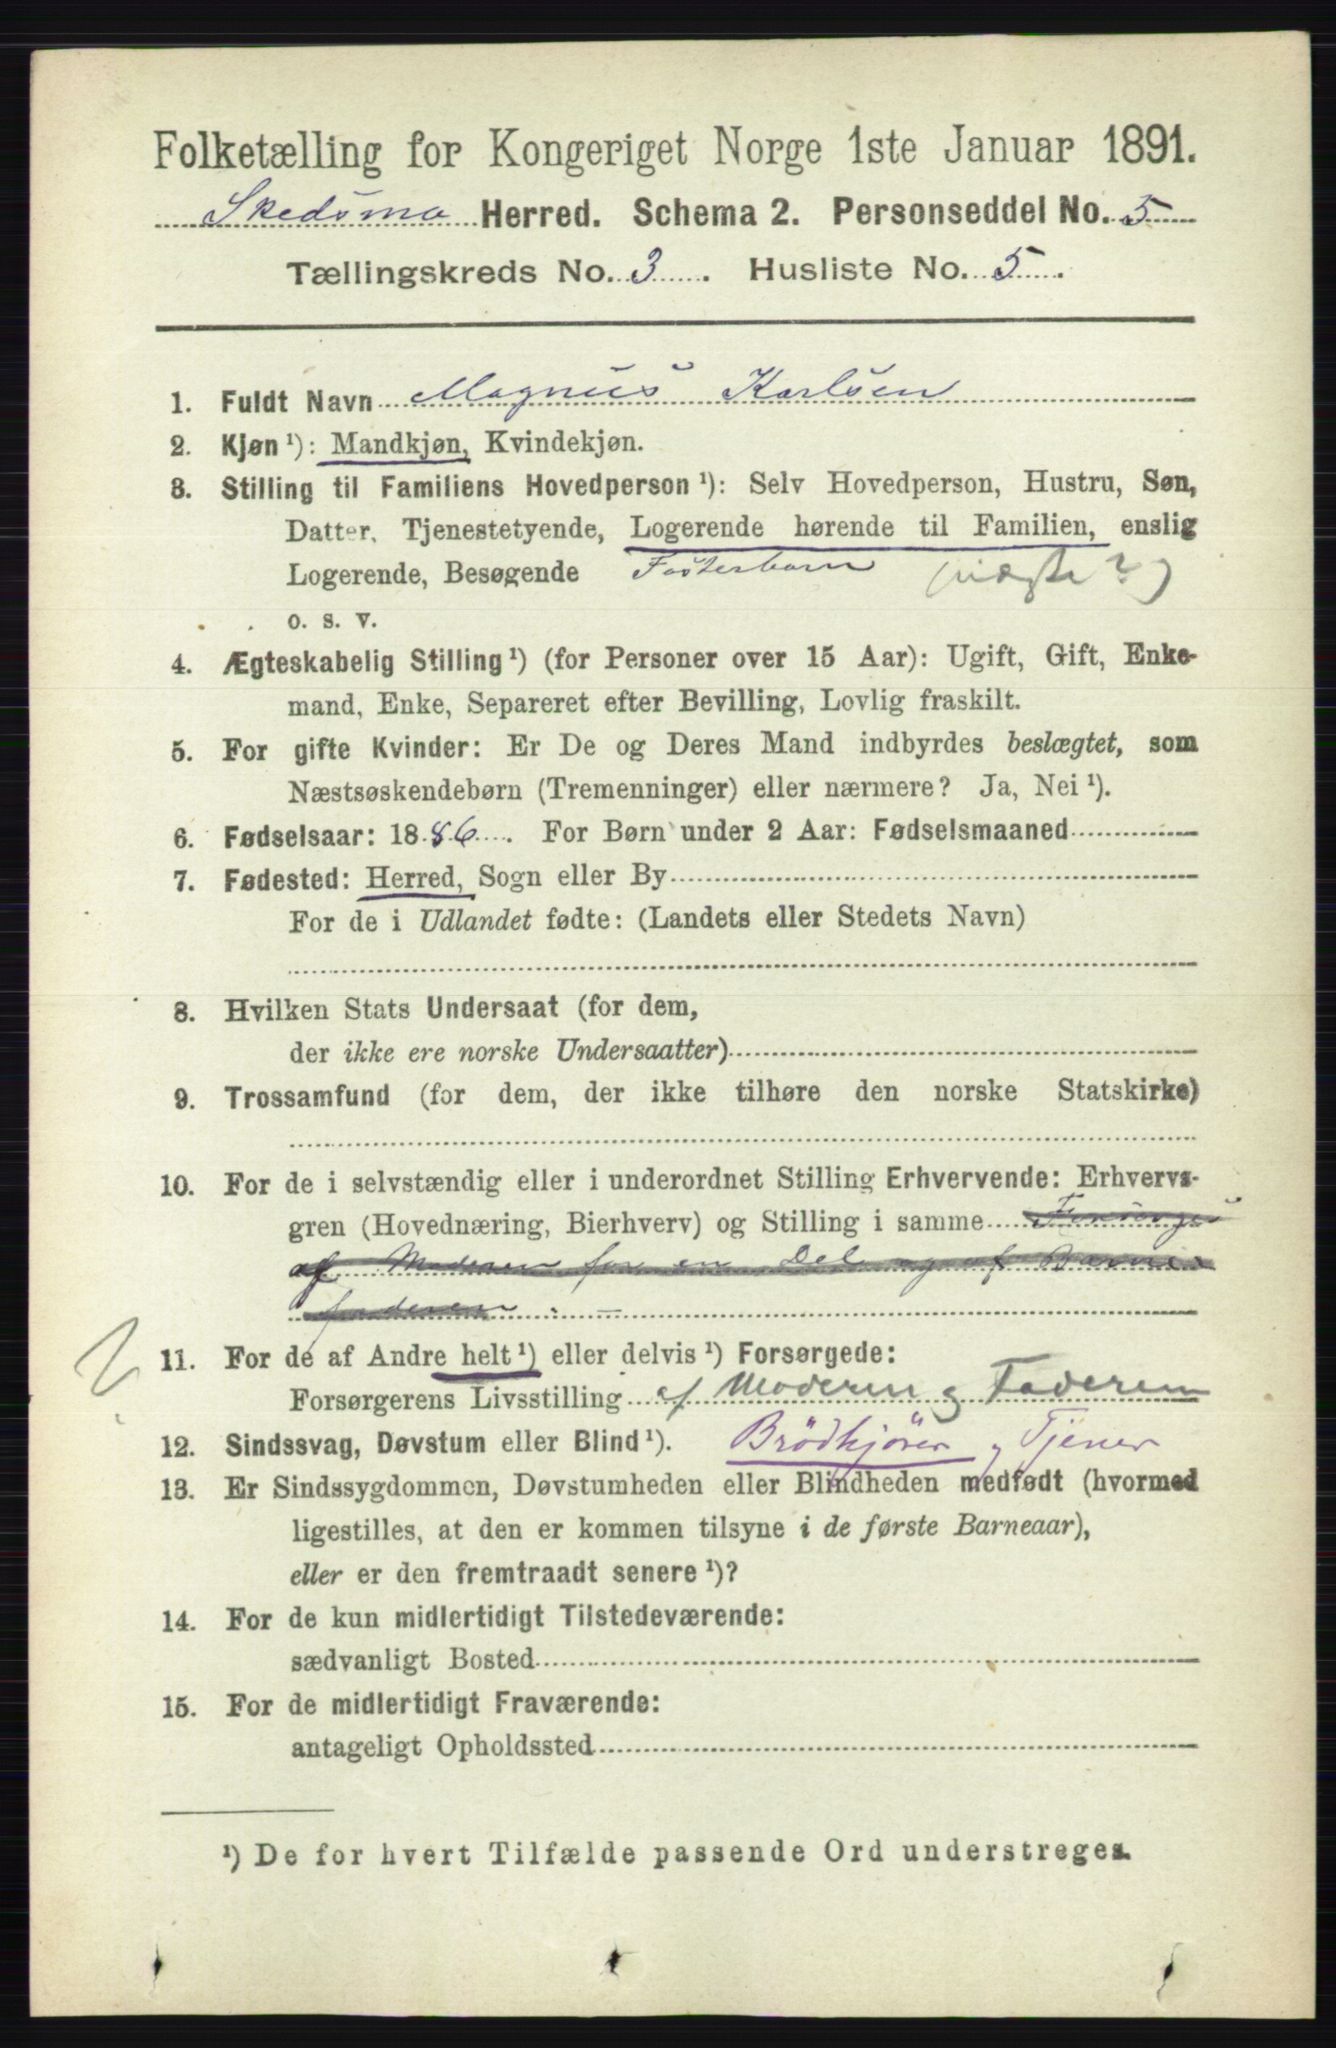 Folketælling for Kongeriget Norge 1ste Januar 1891.
Skedsmo Herred. Schema 2. Personseddel No. 5
Tællingskreds No. 3. Husliste No. 5.
1. Fuldt Navn Magnus Karlsen
2. Kjøn ¹): Mandkjøn, Kvindekjøn.
3. Stilling til Familiens Hovedperson ¹): Selv Hovedperson, Hustru, Søn,
Datter, Tjenestetyende, Logerende hørende til Familien, enslig
Logerende, Besøgende Fosterbarn
o. s. v.
4. Ægteskabelig Stilling ¹) (for Personer over 15 Aar): Ugift, Gift, Enke-
mand, Enke, Separeret efter Bevilling, Lovlig fraskilt.
5. For gifte Kvinder: Er De og Deres Mand indbyrdes beslægtet, som
Næstsøskendebørn (Tremenninger) eller nærmere? Ja, Nei ¹).
6. Fødselsaar: 1886. For Børn under 2 Aar: Fødselsmaaned
7. Fødested: Herred, Sogn eller By
For de i Udlandet fødte: (Landets eller Stedets Navn)
8. Hvilken Stats Undersaat (for dem,
der ikke ere norske Undersaatter)
9. Trossamfund (for dem, der ikke tilhøre den norske Statskirke)
10. For de i selvstændig eller i underordnet Stilling Erhvervende: Erhvervs-
gren (Hovednæring, Bierhverv) og Stilling i samme Forsørges
af Moderen for en Del og af Barne
faderen
11. For de af Andre helt ¹) eller delvis ¹) Forsørgede:
Forsørgerens Livsstilling af Moderen og Faderen
12. Sindssvag, Døvstum eller Blind ¹). Brödkjörer og Tjener
13. Er Sindssygdommen, Døvstumheden eller Blindheden medfødt (hvormed
ligestilles, at den er kommen tilsyne i de første Barneaar),
eller er den fremtraadt senere ¹)?
14. For de kun midlertidigt Tilstedeværende:
sædvanligt Bosted
15. For de midlertidigt Fraværende:
antageligt Opholdssted
¹) De for hvert Tilfælde passende Ord understreges.